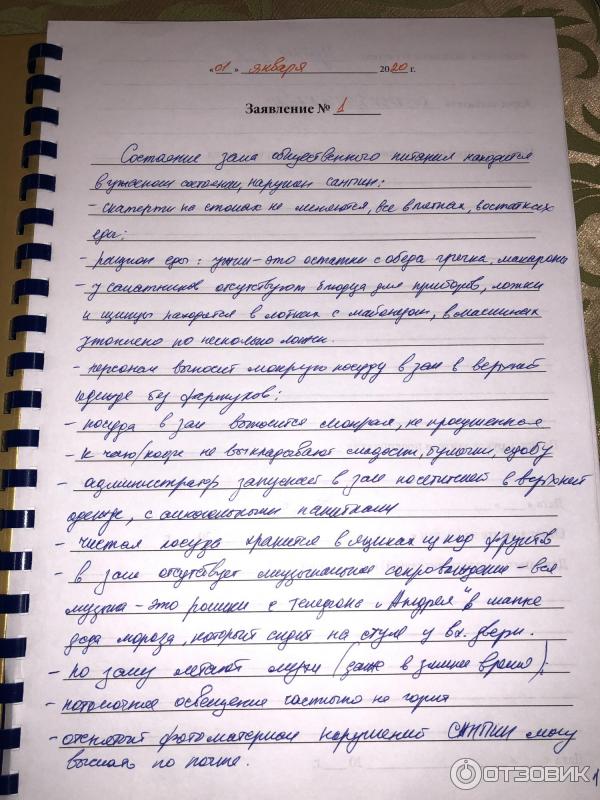 «01» января 2020 г.
Заявление № 1
Состояние зала общественного питания находится
в ужасном состоянии, нарушен санпин:
- скатерти на столах не меняются, все в пятнах, в остатках
еды;
- рацион еды: ужин - это остатки с обеда гречка, макароны
- у салатников отсутствуют блюдца для приборов, ложки
и щипцы находятся в лотках с майонезом, в маслинах
утоплено по несколько ложек.
- персонал выносит мокрую посуду в зал в верхней
одежде без фартуков;
- посуда в зал выносится мокрая, не просушенная
- к чаю/кофе не выкладывают сладости, булочки, сдобу
- администратор запускает в зал посетителей в верхней
одежде, с алкогольными напитками
- чистая посуда хранится в ящиках из под фруктов
- в зале отсутствует музыкальное сопровождение - вся
музыка - это ролики с телефона "Андрея" в шапке
деда мороза, который сидит на стуле у вх. двери.
- по залу летают мухи (даже в зимнее время);
- потолочное освещение частично не горит
- отснятый фотоматериал нарушений САНПИН могу
выслать по почте.
1
ОТЗОВИК